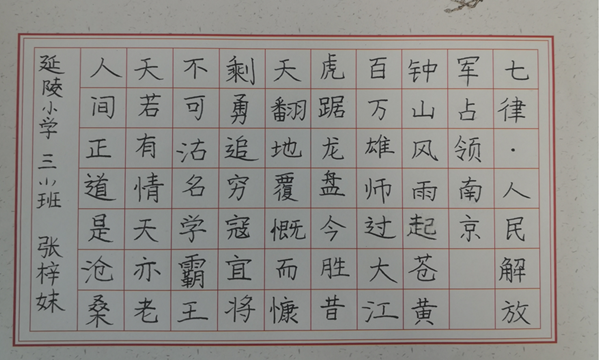 七律·人民解放
军占领南京
钟山风雨起苍黄
百万雄师过大江
虎踞龙盘今胜昔
天翻地覆慨而慷
剩勇追穷寇宜将
不可沽名学霸王
天若有情天亦老
人间正道是沧桑
延陵小学 三 班 张梓妹